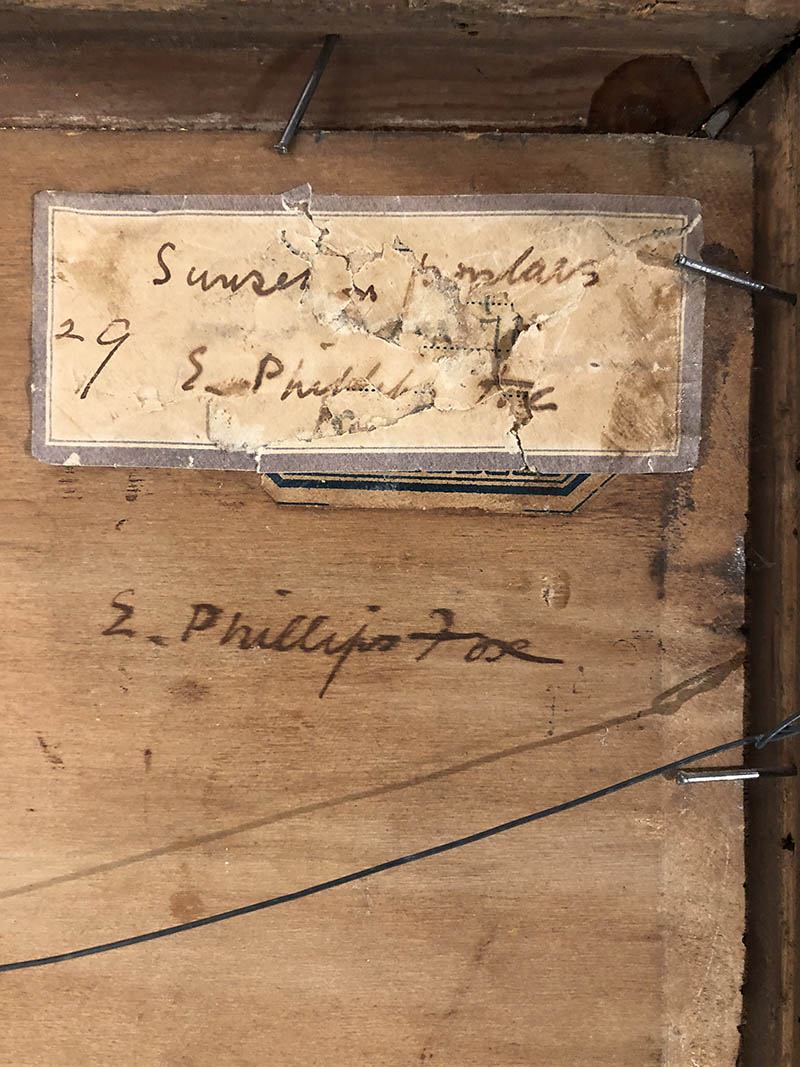 Sunset on poplars
29
E. Phillips Fox
E. Phillips Fox